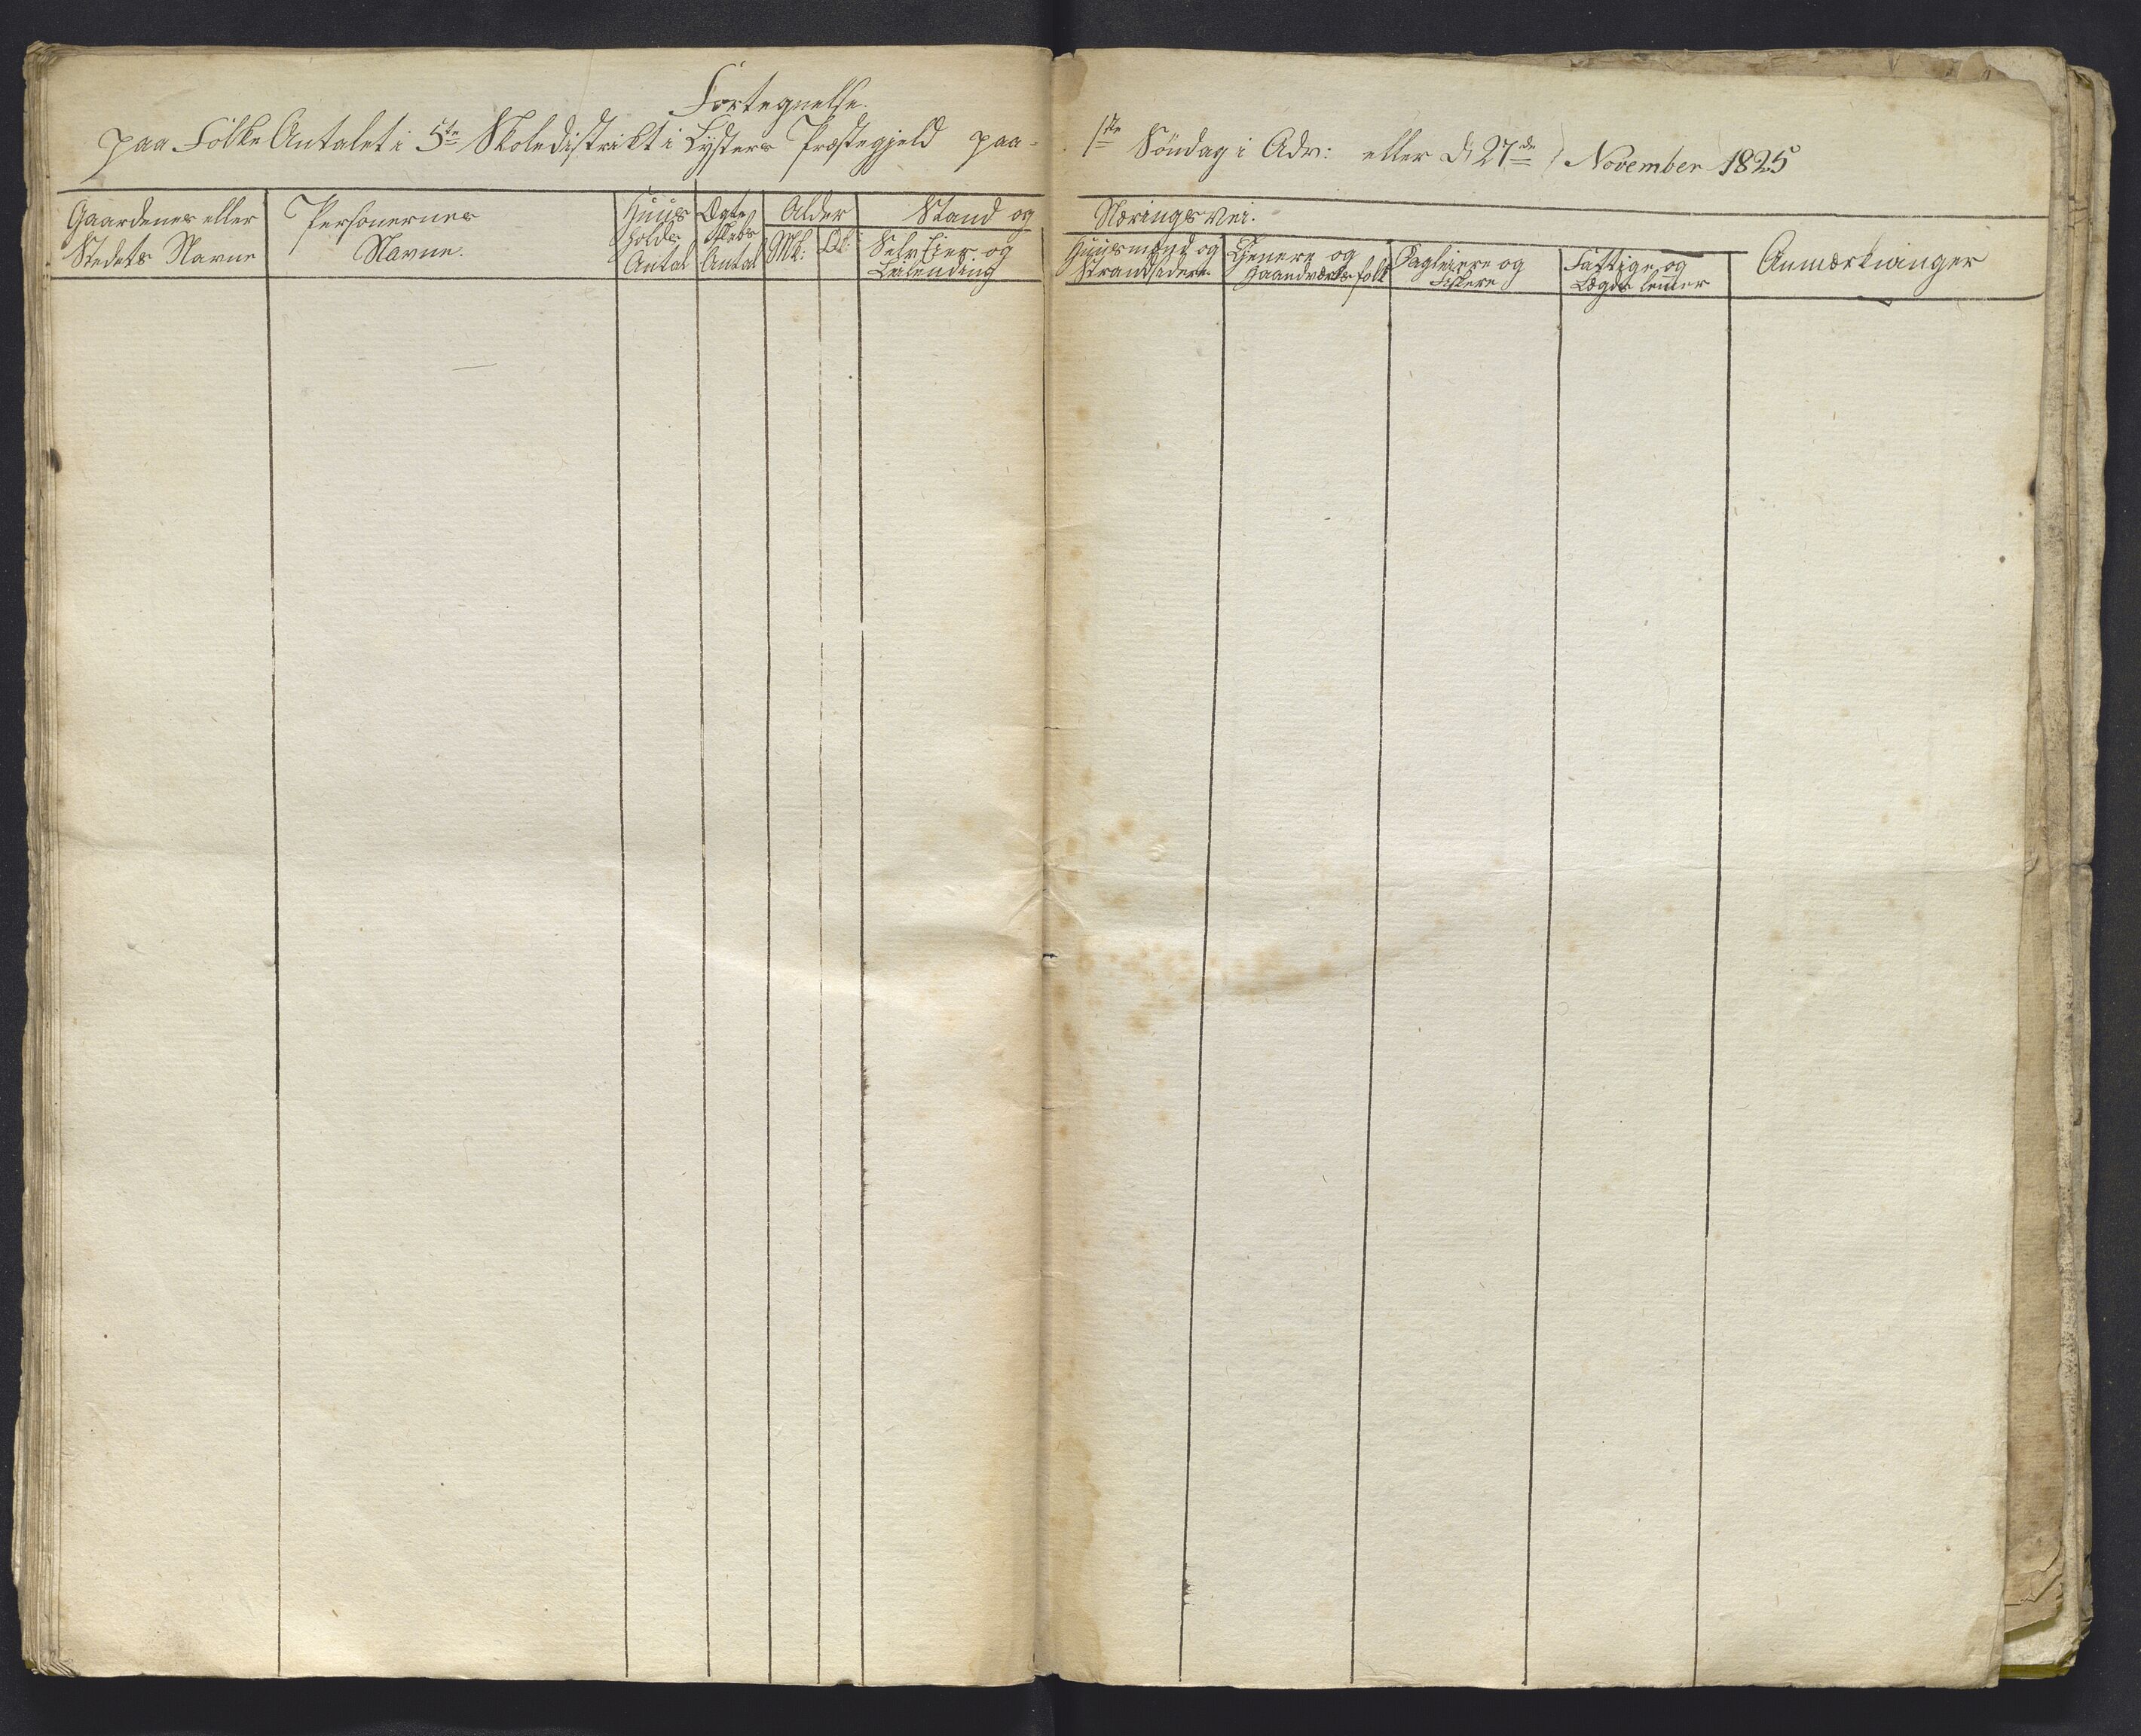 Fortegnelse
paa Folke Antalet i 5te Skoledistrikt i Lysters Præstegjeld paa 1ste Söndag i Adv: eller d 27de November 1825
Gaardenes eller Stedets Navne
Personernes Navne.
Huus holds Antal
Ægte skabs Antal
Alder
Mk:
Qk:
Stand og Næringsvei.
Selv Eier og Leilending
Huusmend og Strandsidere
Tjenere og Haandværksfolk
Dagleiere og Fiskere
Fattige og Lægds lemer
Anmærkninger